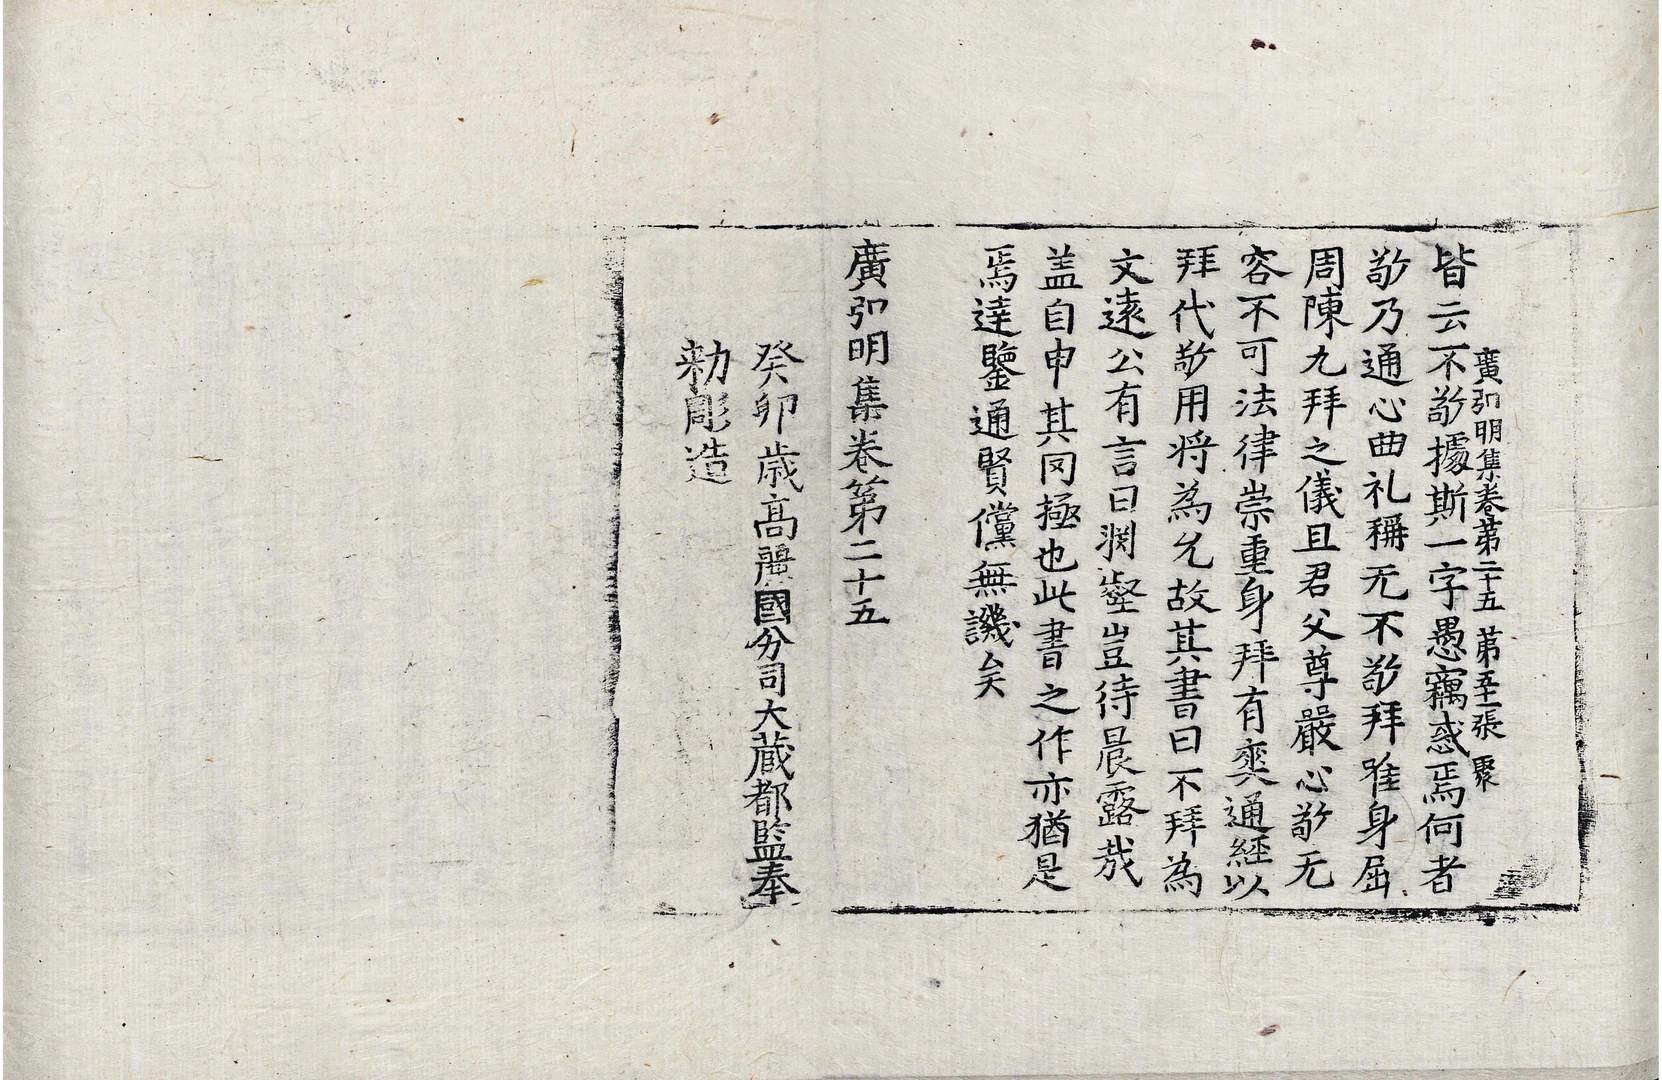 廣弘明集卷第二十五 第五十一張 聚
皆云不敬據斯一字愚竊惑焉何者
敬乃通心曲礼稱无不敬拜唯身屈
周陳九拜之儀且君父尊嚴心敬无
容不可法律崇重身拜有爽通經以
拜代敬用將為允故其書曰不拜為
文遠公有言曰渕壑豈待晨露哉
盖自申其罔極也此書之作亦猶是
焉達鑒通賢儻無譏矣
廣弘明集卷第二十五
癸卯歳高麗國分司大藏都監奉
勑彫造